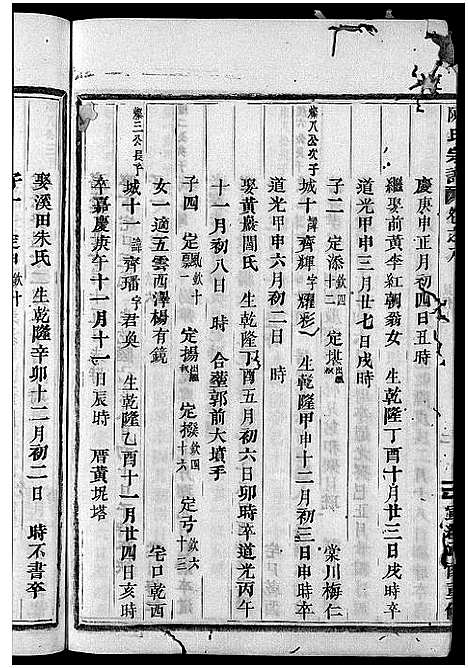 慶庚申正月初四日丑時
繼娶前黃李紅朝翁女 生乾隆丁酉十月廿三日戌時卒
道光甲申三月廿七日戌時
子二 定添欽四 定堪出繼 棠川梅仁
燦八公次子
城十諱齊輝字耀彩 生乾隆甲申十二月初三日申時卒
道光甲申六月初二日 時
娶黃嚴閭氏 生乾隆丁酉五月初六日卯時卒道光丙午
十一月初八日 時 合葬郭前大墳手
子四 定飄欽十一 定揚出繼 定撥欽四十六 定弓欽六十三
女一適五雲西澤楊有鏡 宅口乾西
燦三公長子
城十一諱齊璠字君奐 生乾隆乙酉十一月廿四日亥時
卒嘉慶庚午十一月十一日辰時 厝黃坭塔
娶溪田朱氏 生乾隆辛卯十二月初二日 時不書卒